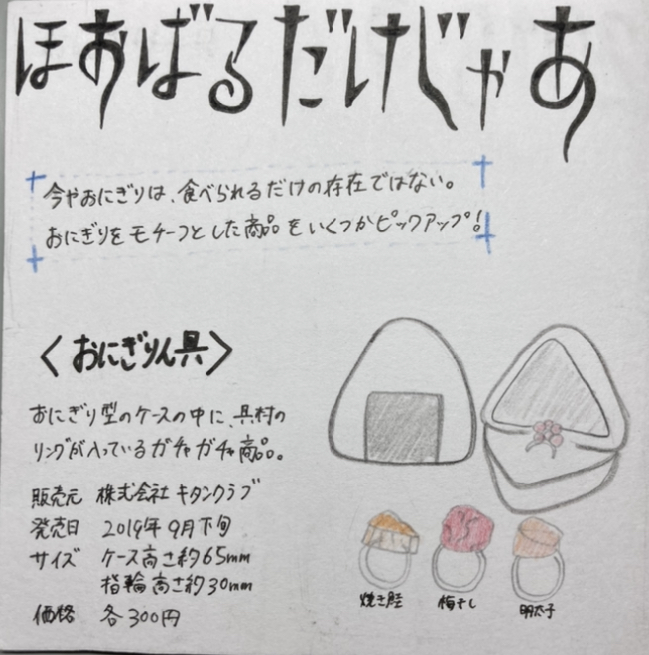 ほおばるだけじゃあ
今やおにぎりは、食べられるだけの存在ではない。
おにぎりをモチーフとした商品をいくつかピックアップ!
〈おにぎりん具〉
おにぎり型のケースの中に、具材の
リングが入っているガチャガチャ商品。
販売元 株式会社キタンクラブ
発売日 2019年9月下旬
サイズ ケース高さ約65mm
指輪高さ約30mm
価格 各300円
焼き鮭 梅干し 明太子